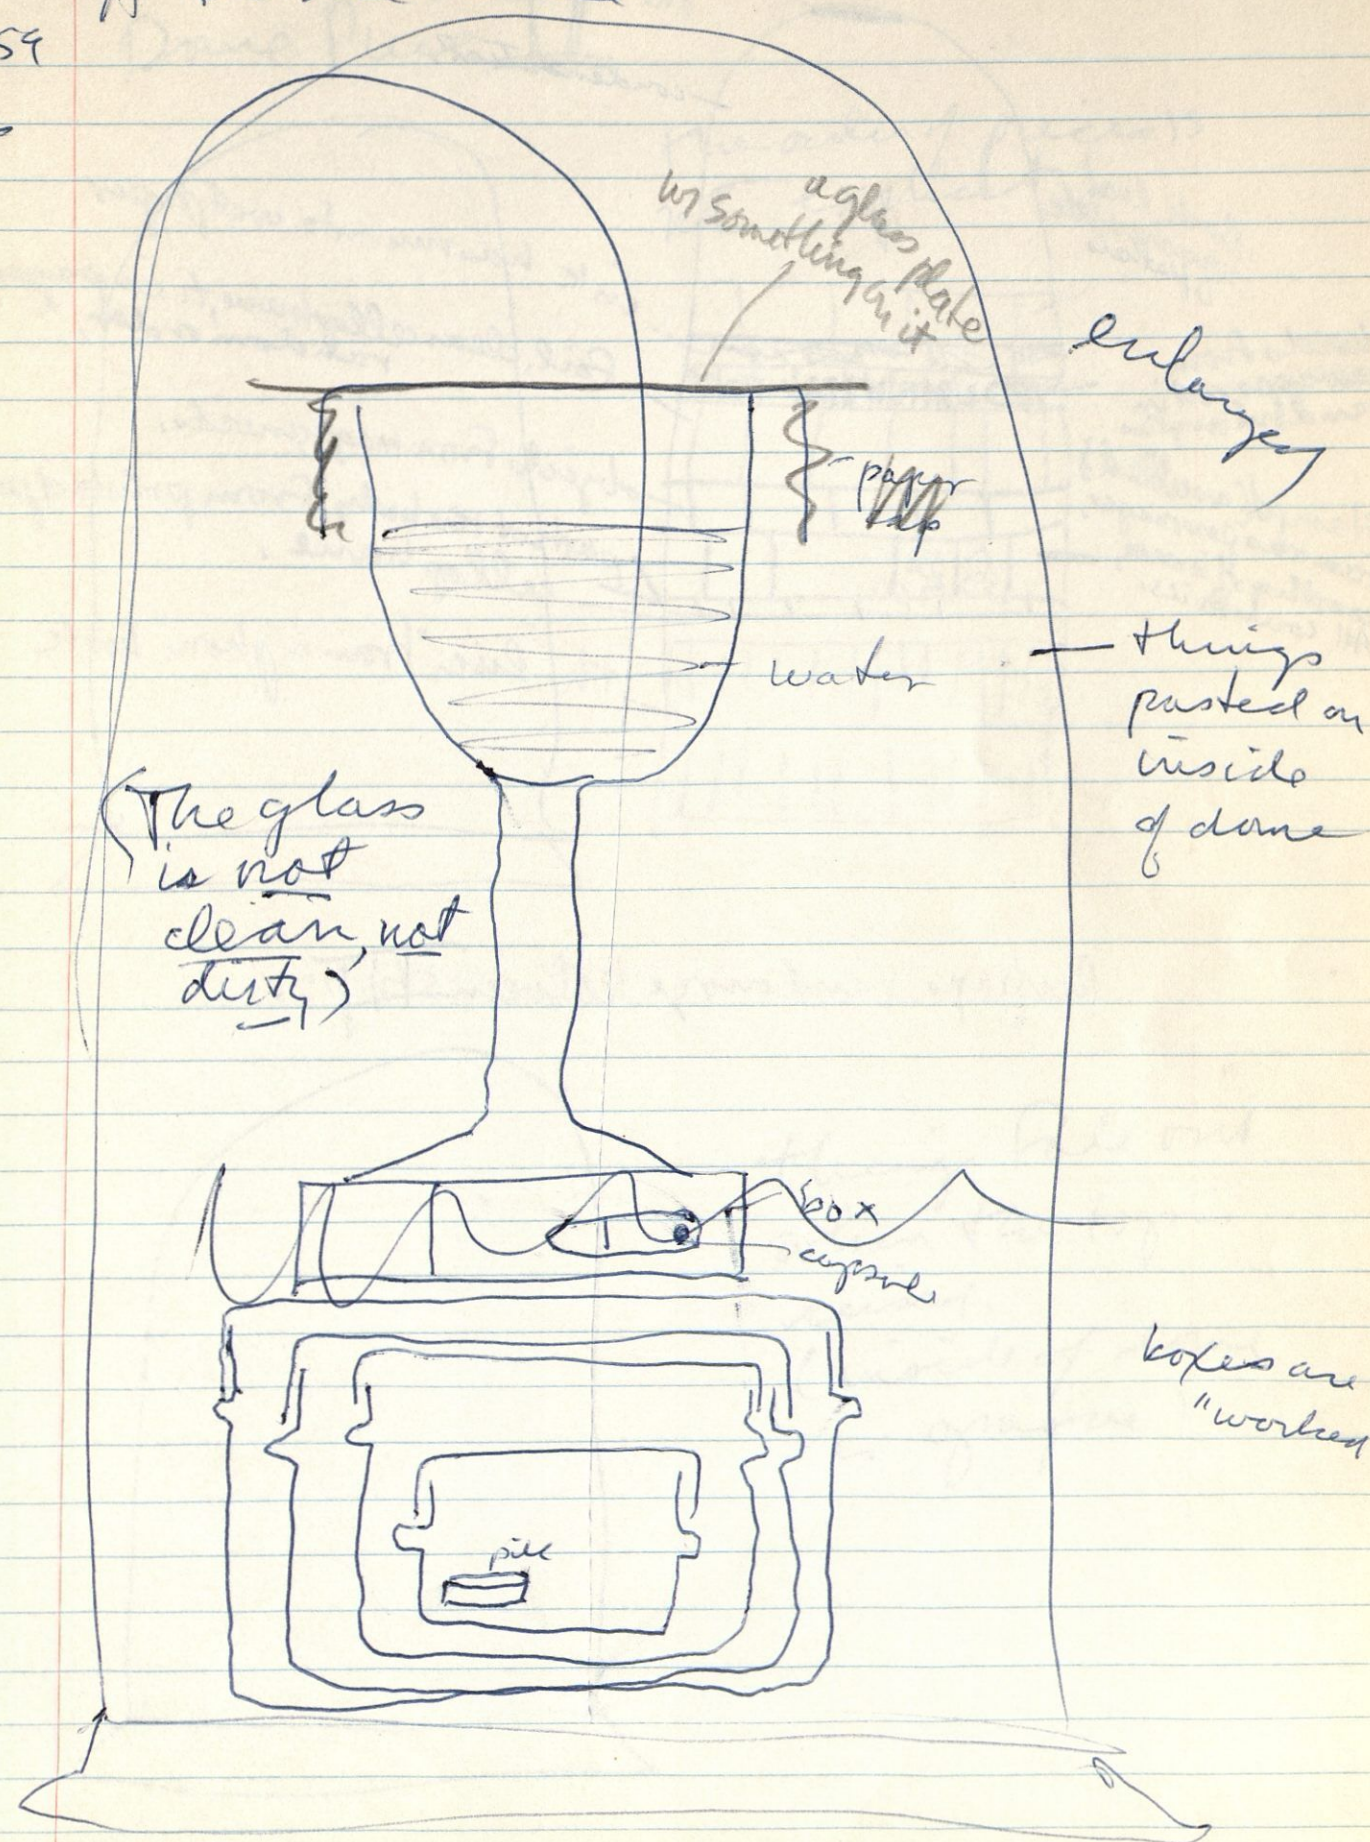 59
a glass plate
w/ something on it
enlarge
paper
water
things
pasted on
inside
of dome
(The glass
is not
clean, not
dirty)
box
capsule
boxes are
"worked
pill